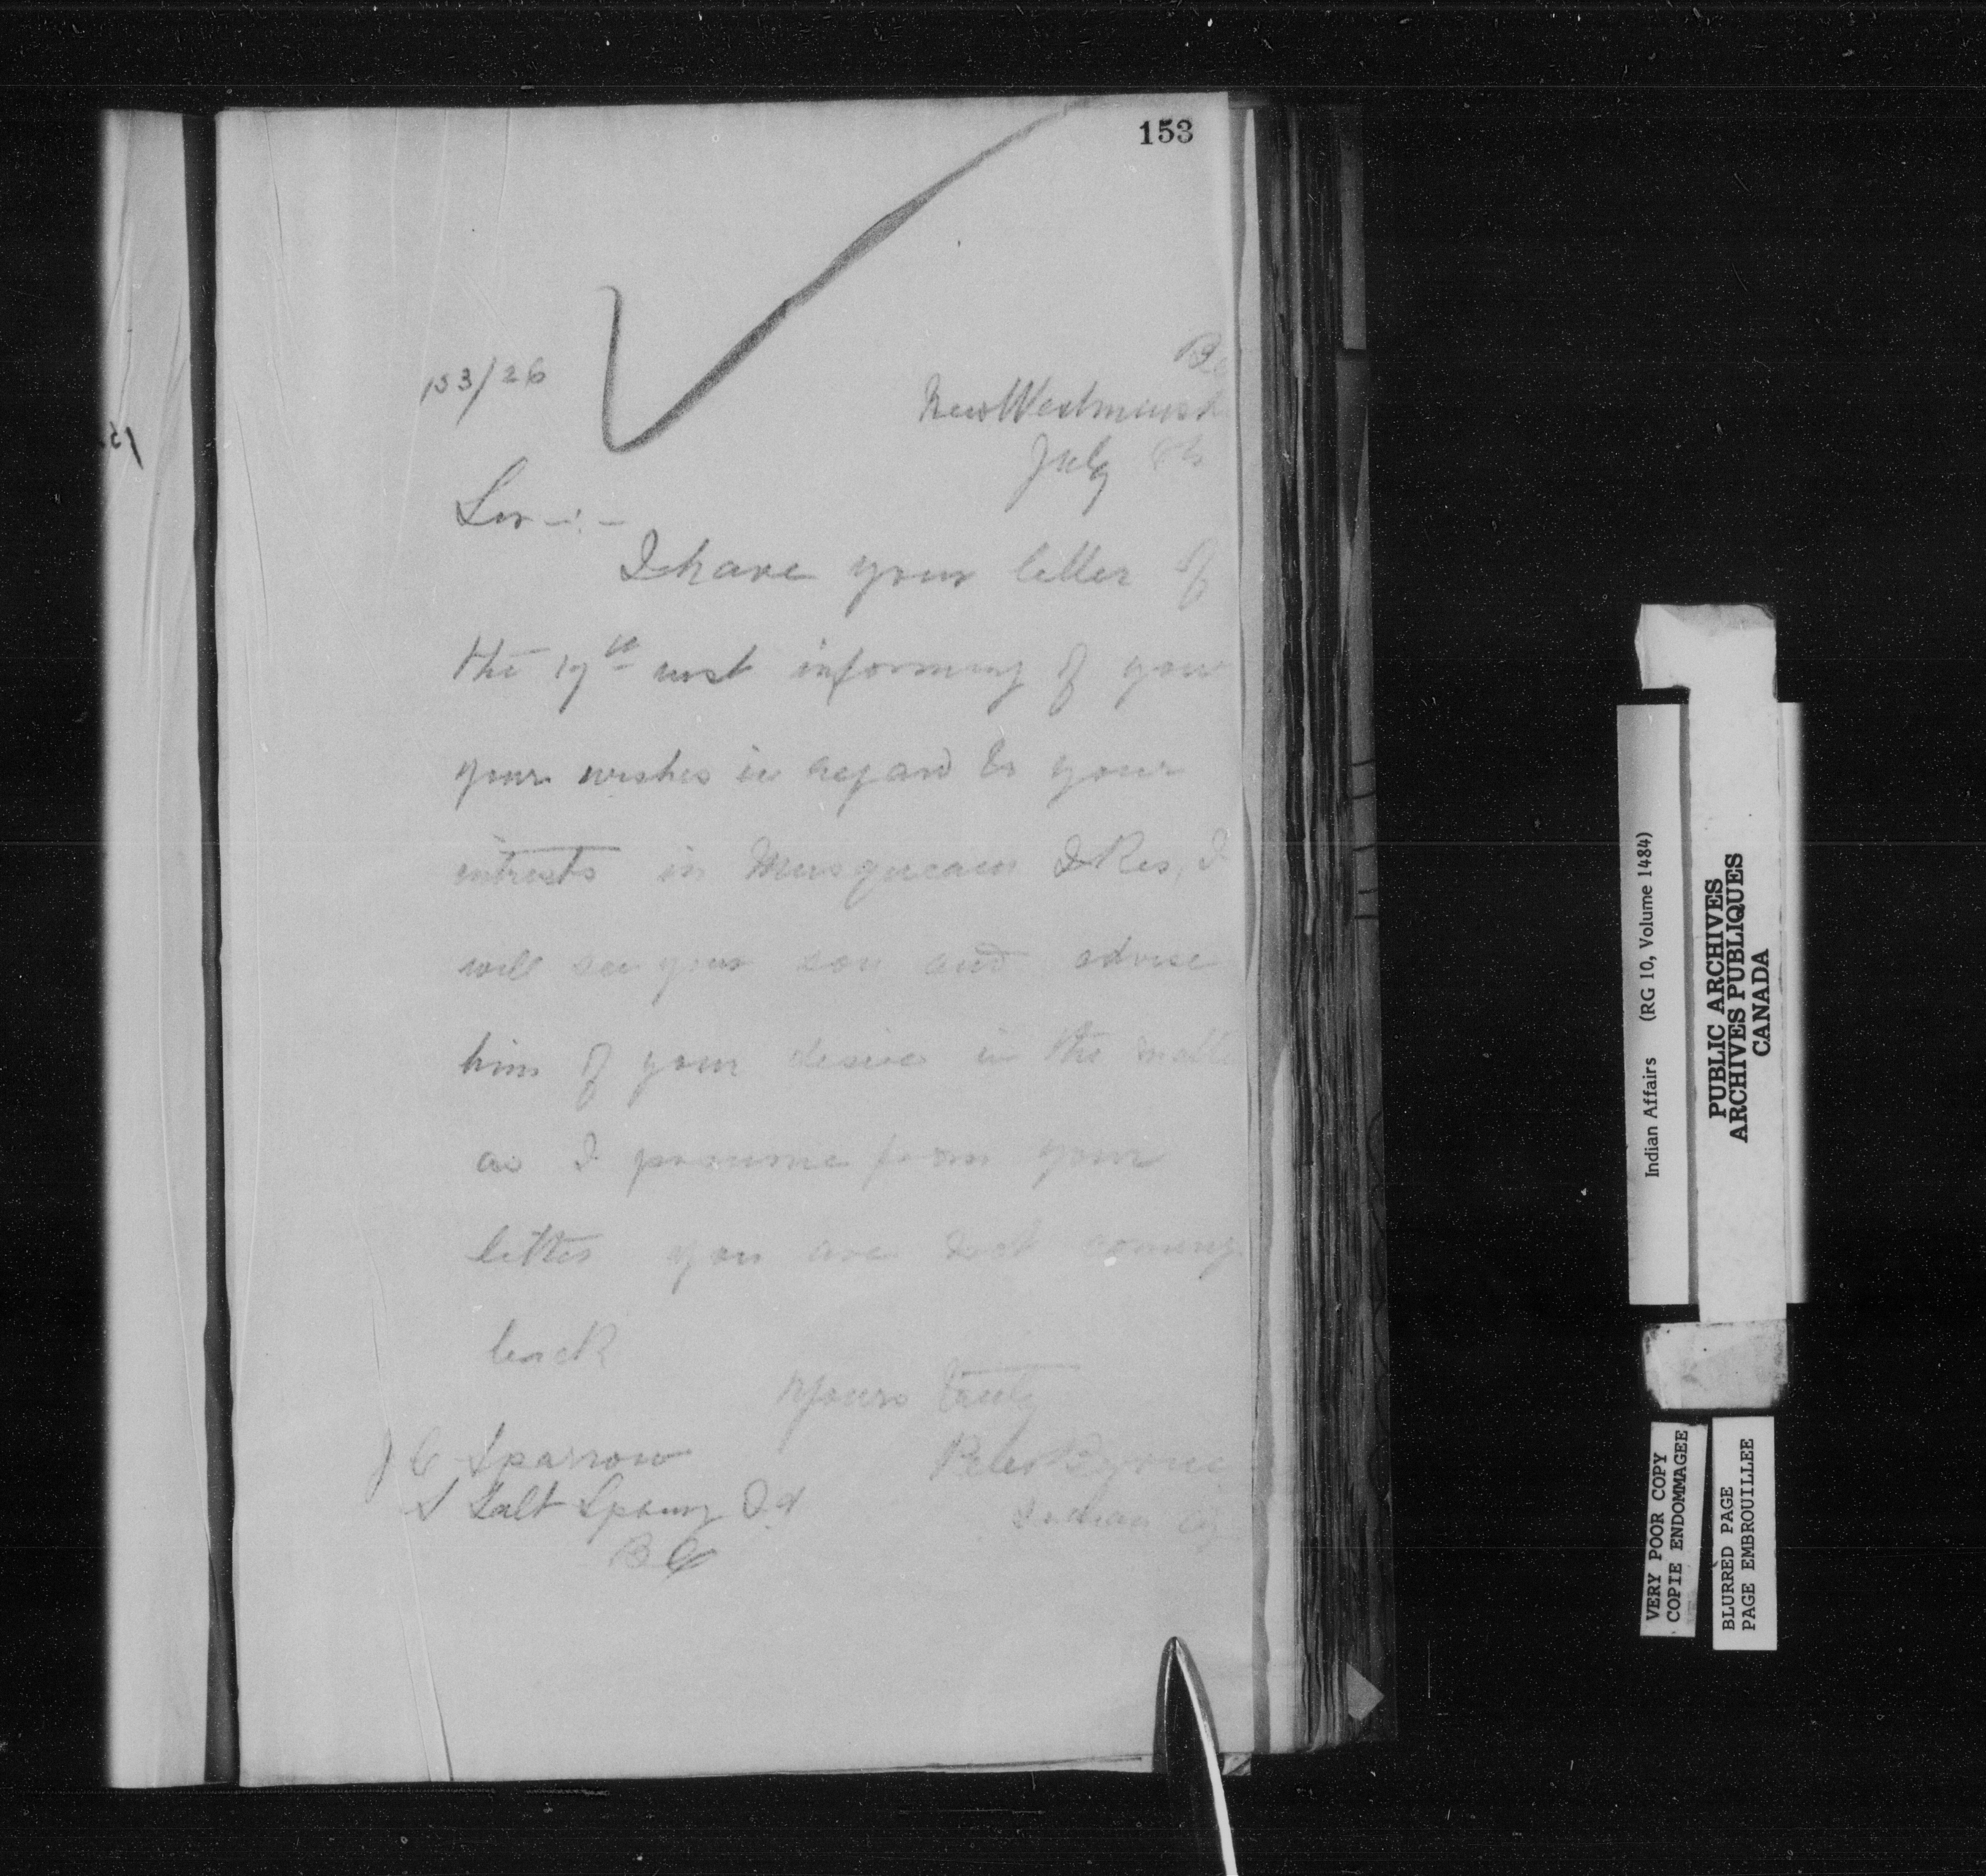 153
153/26
BC
New Westminst
July 8th
Sir -:-
I have your letter of
the 17th inst informing of your
your wishes in regard to your
intrests in Musqueam I Res, I
will see your son and advise
him of your desire in the matte
as I presume from your
letter you are not coming
back
Yours truly
J C Sparrow
S Salt Spring Id
BC
Peter Byrne
Indian Ag
Indian Affairs (RG 10, Volume 1484)
PUBLIC ARCHIVES
ARCHIVES PUBLIQUES
CANADA
VERY POOR COPY
COPIE ENDOMMAGEE
BLURRED PAGE
PAGE EMBROUILLEE